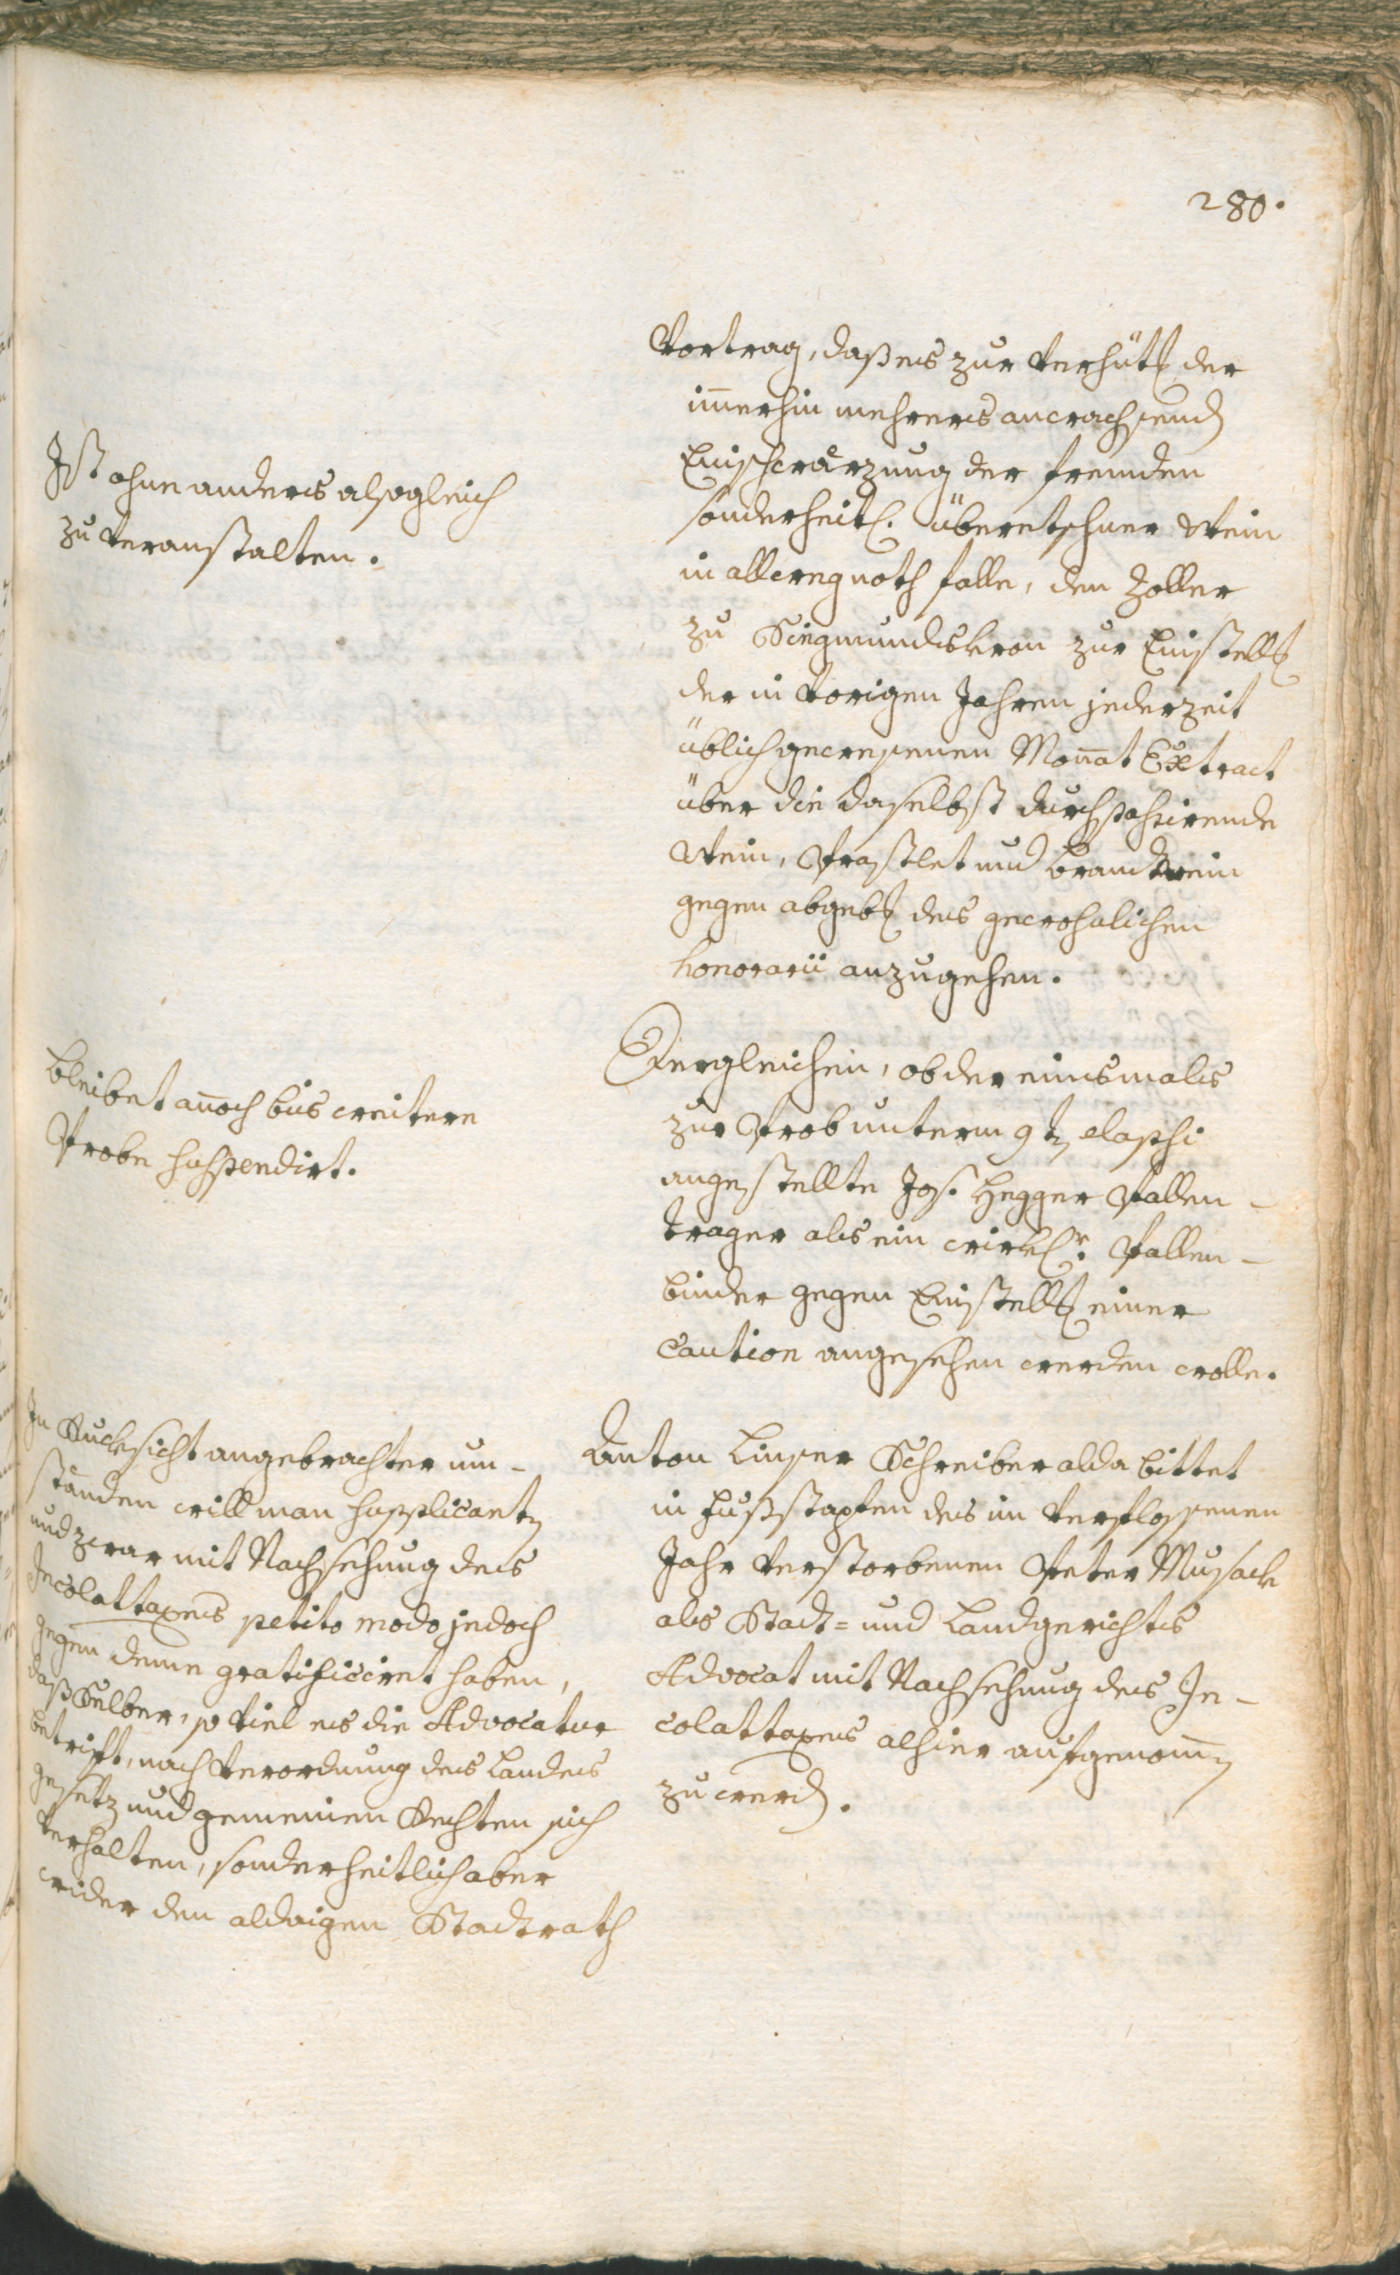 280.
Vortrag, daß es zur Verhüt[ung] der
im̅erhin mehrers anwachsend[en]
Einschwärzung der fremden
sonderheitl. überetschner Wein
in allwegnoth falle, den Zoller
zu Siegmundskron zur Einstell[ung]
der in vorigen Jahren jederzeit
üblich gewesenen Monnat Extract
über die daselbst durchpassirende
Wein, Praschlet und Brandtwein
gegen abgeb[ung] des gewohnlichen
honorarii anzugehen.
Ist ohne anders alsogleich
zu veranstalten.
Dergleichen, ob der einsmals
zur Prob unterm 9t[en] elapsi
angestellte Jos. Hegger Pallen-
trager als ein wirkl.r Pallen-
binder gegen Einstell[ung] einer
Caution angesehen werden wolle.
bleibet an̅och bis weitere
Probe suspendirt.
Anton Linser Schreiber alda bittet
in fußstapfen des im verflossenen
Jahr verstorbenen Peter Musack
als Stadt- und Landgerichts
Advocat mit Nachsehung des In-
colattaxes alhier aufgenom̅[en]
zu werd[en].
In Rucksicht angebrachter um-
ständen will man supplicant[en]
und zwar mit Nachsehung des
Incolattaxens petito modo jedoch
gegen deme gratificiret haben,
daß Selber, so viel es die Advocatur
betrifft, nach Verordnung des Landes
gesetz und gemeinen Rechten sich
verhalten, sonderheitlich aber
wider den aldaigen Stadtrath